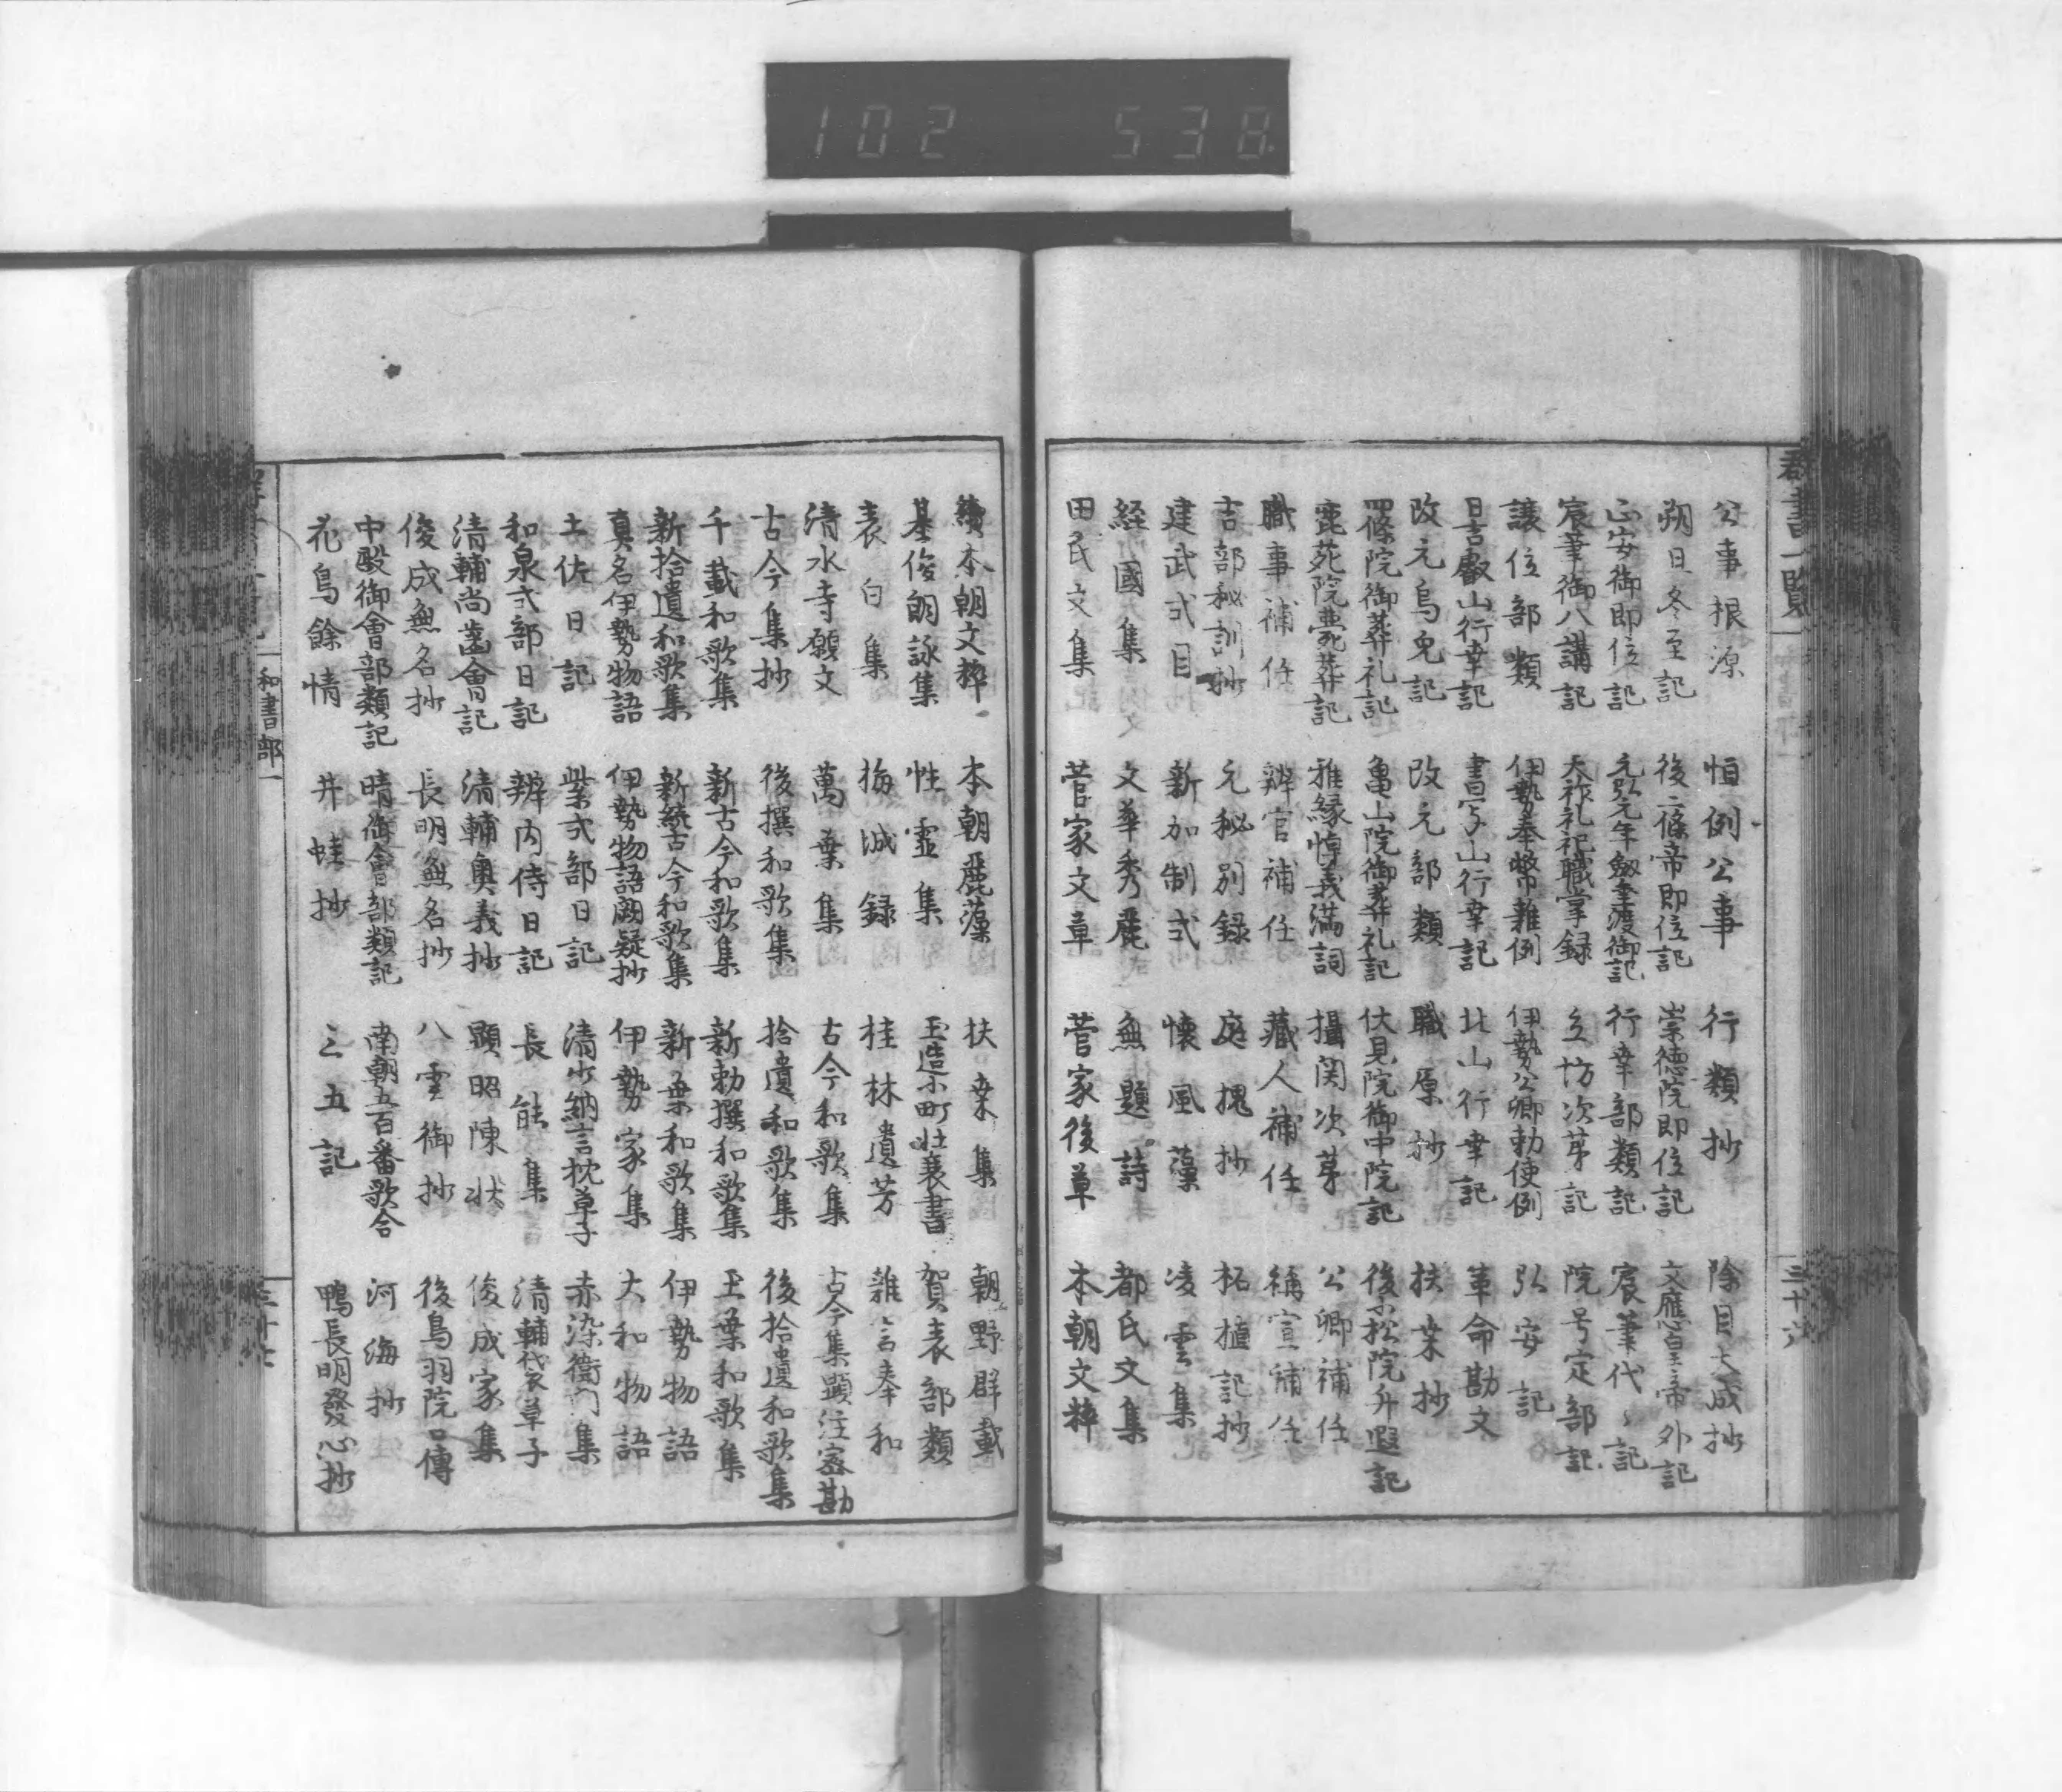 102 538
群書一覧
公事根源 恒例公事 行類抄 除目大成抄
朔旦冬至記 後二條帝即位記 崇德院即位記 文應皇帝外記
正安御即位記 元弘元年劔璽渡御記 行幸部類記 宸筆代〻記
宸筆御八講記 大祚礼祀職掌録 立坊次苐記 院号定部記
讓位部類 伊勢奉幣雜例 伊勢公卿勅使例 弘安記
日吉叡山行幸記 書写山行幸記 北山行幸記 革命勘文
改元烏兔記 改元部類 職原抄 扶桒抄
四條院御葬礼記 亀山院御葬礼記 伏見院御中院記 後小松院升遐記
鹿苑院薨葬記 雅縁悼義満詞 攝関次苐 公卿補任
職事補任 辨官補任 藏人補任 稱宣補任
吉部秘訓抄 元秘別録 庭槐抄 柘植記抄
建武式目 新加制式 懷風藻 凌雲集
経國集 文華秀麗 無題詩 都氏文集
田氏文集 菅家文章 菅家後草 本朝文粹
三十六
續本朝文粹 本朝麗藻 扶桒集 朝野群載
基俊朗詠集 性霊集 玉造小町壮衰書 賀表部類
表白集 梅城録 桂林遺芳 雜言奉和
清水寺願文 萬葉集 古今和歌集 古今集顕注密勘
古今集抄 後撰和歌集 拾遺和歌集 後拾遺和歌集
千載和歌集 新古今和歌集 新勅撰和歌集 玉葉和歌集
新拾遺和歌集 新続古今和歌集 新葉和歌集 伊勢物語
真名伊勢物語 伊勢物語闕疑抄 伊勢家集 大和物語
土佐日記 紫式部日記 清少納言枕草子 赤染衛門集
和泉式部日記 辨内侍日記 長能集 清輔袋草子
清輔尚齒會記 清輔奥義抄 顕昭陳状 俊成家集
俊成無名抄 長明無名抄 八雲御抄 後鳥羽院口傳
中殿御會部類記 晴御會部類記 南朝五百番歌合 河海抄
花鳥餘情 井蛙抄 三五記 鴨長明發心抄
和書部一
三十七